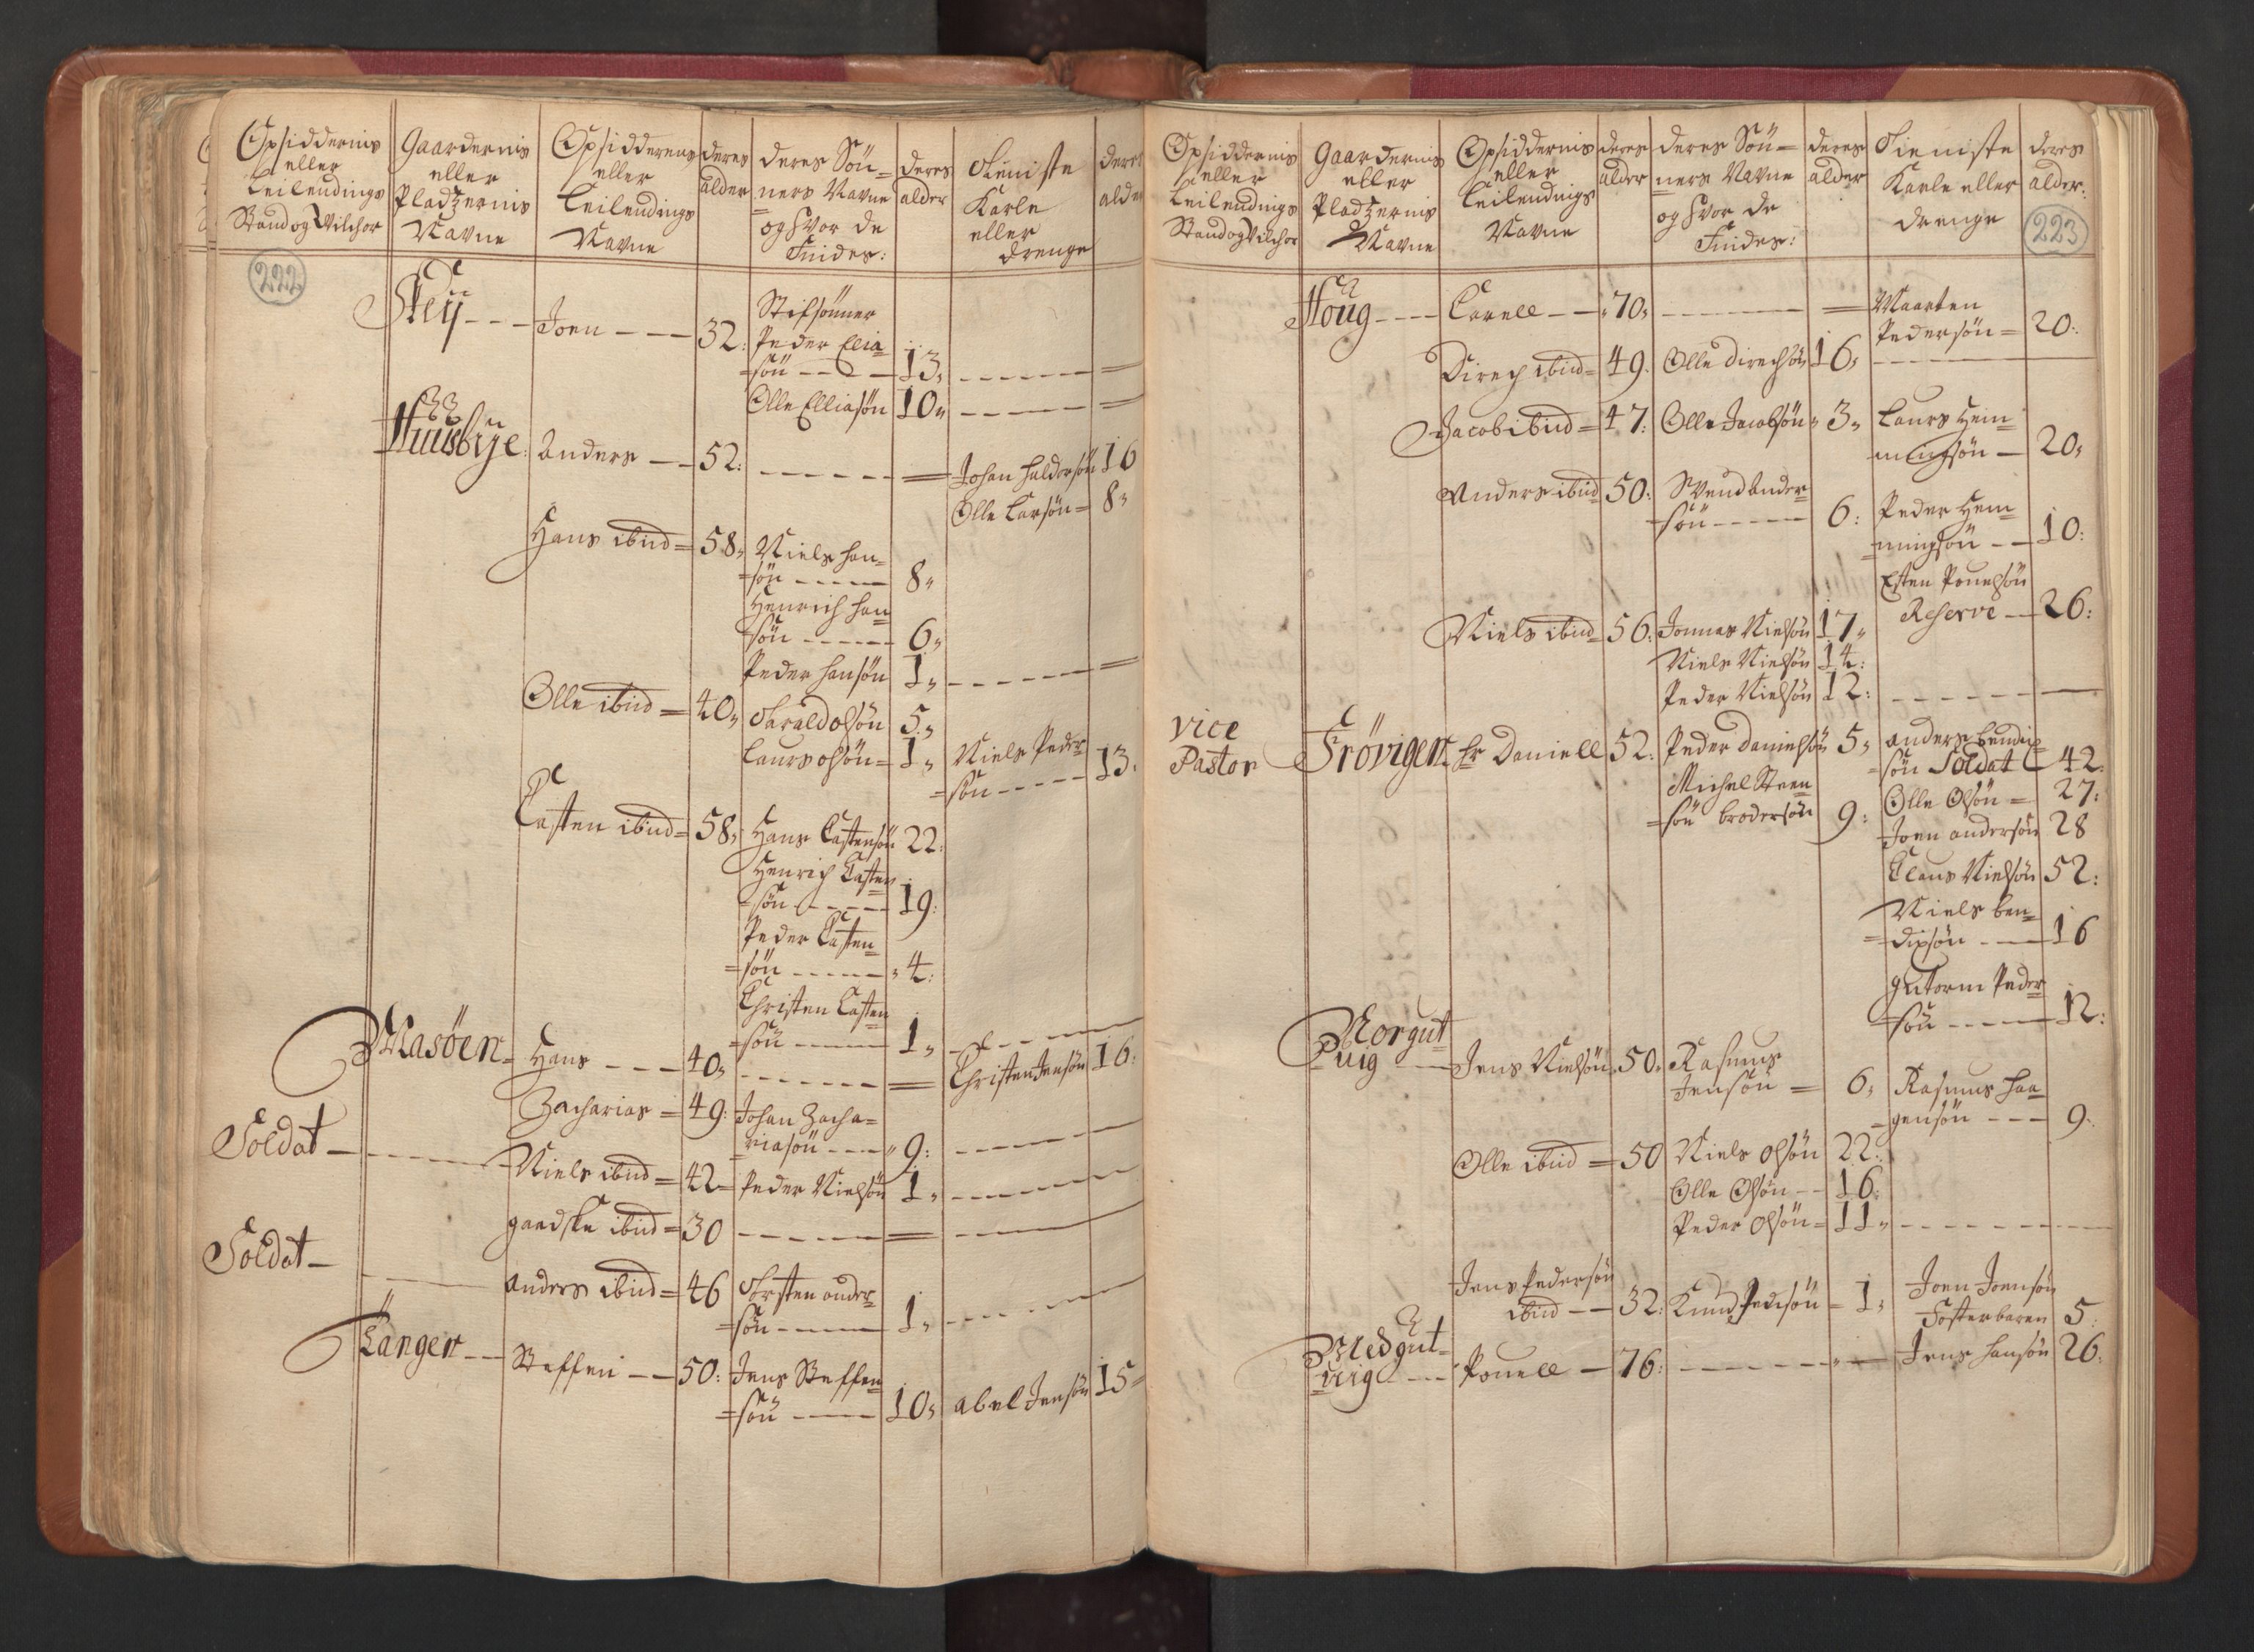 Opsiddernis
eller
Leilendings
Stand og Vilchor
Gaardernis
eller
Pladzernis
Navne
Opsidderens
eller
Leilendings
Navne
deres
alder
deres Søn=
=ners Navne
og hvor de
Findes:
deres
alder
Tieniste
Karle
eller
drenge
deres
alder
222
Joen --- 32:
Stifsønner
Peder Ellia=
=søn --- 13,
Olle Elliasøn 10,
Huusbye: Anders -- 52: ------ = Johan Haldorsøn 16
Olle Larsøn = 8,
Hans ibid = 58, Niels Han=
=søn ----- 8,
Henrich Han=
=søn ----- 6,
Peder Hansøn 1, ------ =
Olle ibid = 40, Harald olsøn 5,
Laurs olsøn = 1, Niels Peder=
=søn ---- 13.
Casten ibid = 58, Hans Castensøn 22:
Henrich Casten=
=søn ----- 19:
Peder Casten=
=søn ----- 4:
Christen Casten=
=søn ---- 1, -----
Masøen - Hans --- 40, ------ = Christen Jensøn 16:
Zacharias = 49: Johan Zacha=
=riasøn --- 9: ------
Soldat - ------ Niels ibid = 42 = Peder Nielsøn 1, ------
gaedske ibid = 30 ------ = ------
Soldat - ------ Anders ibid = 46 Torsten ander=
=søn ---- 1, ------
Langen -- Steffen -- 50: Jens Steffen=
=søn ---- 10, Abel Jensøn 15 =
Opsiddernis
eller
Leilendings
Stand og Vilchor
Gaardernis
eller
Pladzernis
Navne
Opsiddernis
eller
Leilendings
Navne
deres
alder
deres Søn=
=ners Navne
og hvor de
Findes:
deres
alder
Tieniste
Karle eller
drenge
deres
alder:
223
Houg ---- Corneel -- 70, ------ = Maarten
Pedersøn = 20:
Direch ibid = 49. Olle Direchsøn 16, ------
Jacob ibid = 47: Olle Jacobsøn 3, Laurs Hem=
mingsøn - 20,
Anders ibid 50: Svend Ander=
=søn ---- 6: Peder Hem=
=mingsøn -- 10:
Esten Pouelsøn
Reserve - 26:
Niels ibid = 56: Jonnas Nielsøn 17,
Niels Nielsøn 14:
Peder Nielsøn 12: ------
vice
Pastor
Frøvigen Hr Daniell 52: Peder Danielsøn 5, anders bendix=
=søn Soldat 42:
Michel Steen=
=søn brodersøn 9:
Olle Olsøn = 27:
Joen andersøn 28
Claus Nielsøn 52:
Niels ben=
=dixsøn --- 16
gutorm Peder=
=søn ---- 12:
Norgut=
=uig --- Jens Nielsøn 50. Rasmus
Jensøn = 6, Rasmus Haa=
=gensøn --- 9:
Olle ibid = 50 Niels olsøn 22:
Olle Olsøn -- 16:
Peder olsøn = 11, ------
Jens Pedersøn
ibid -- 32: Knud = 1, Joen Joensøn
Fosterbaren 5:
Medgut=
=uig --- Pouell - 76: ------ Jens Hansøn 26: